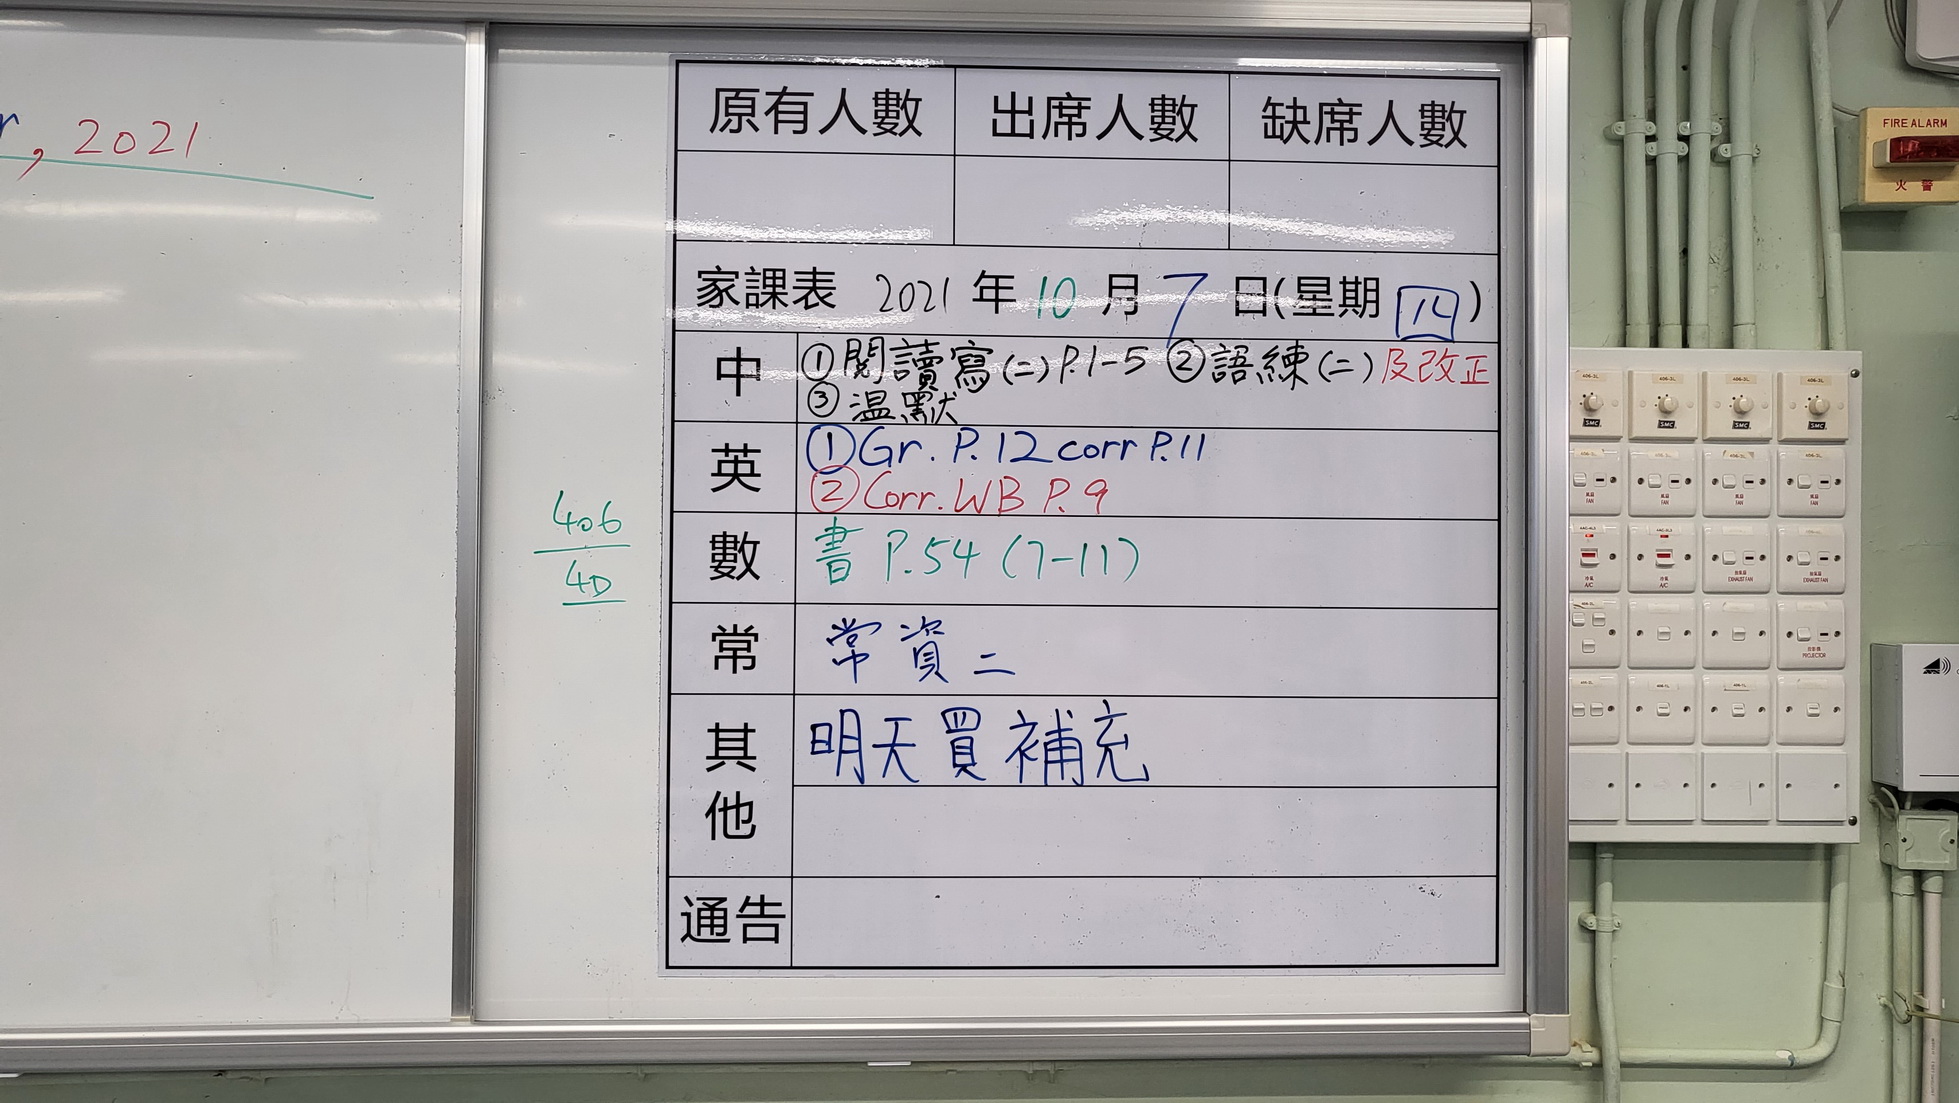 , 2021
原有人數 出席人數 缺席人數
家課表 2021 年 10 月 7 日(星期 四)
中 ①閱讀寫(二)P.1-5 ②語練(二)及改正
③溫默
英 ①Gr. P.12 corr P.11
②Corr. WB P.9
數 書 P.54 (7-11)
常 常資二
其他 明天買補充
通告
406
4D
FIRE ALARM
火警
SMC SMC SMC SMC
FAN FAN FAN FAN
A/C A/C EXHAUST FAN EXHAUST FAN
PROJECTOR